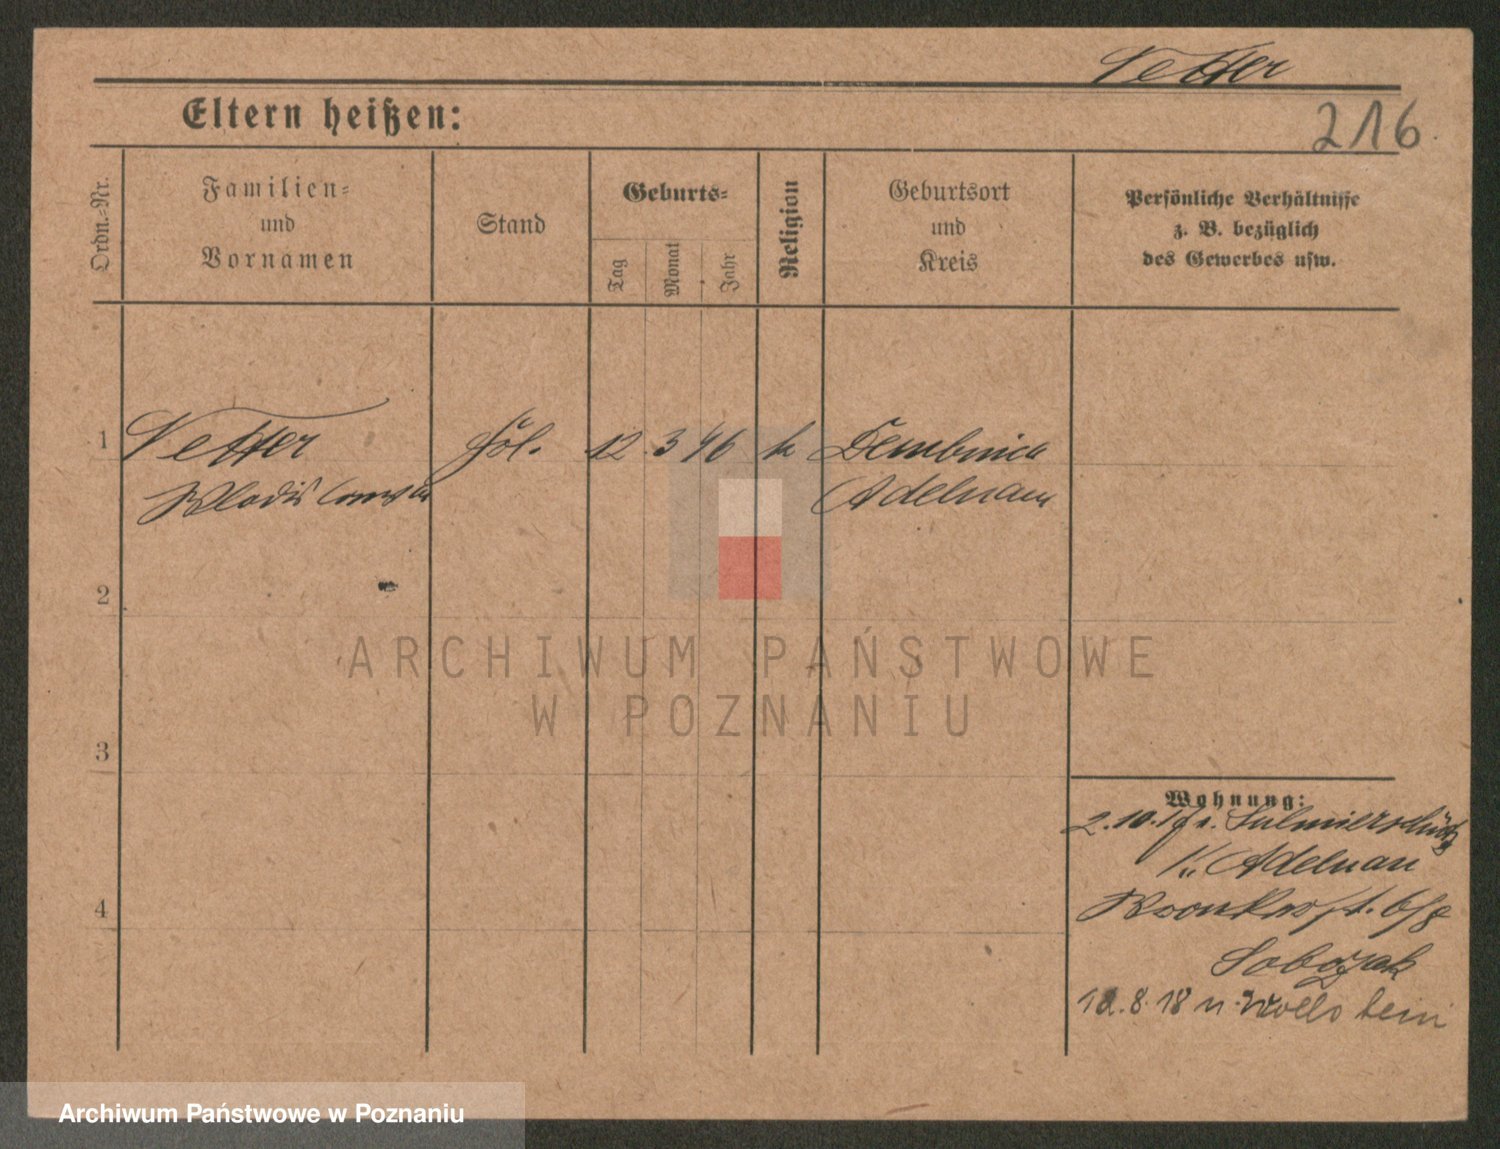 Vetter
Eltern heißen:
216
Ordn.=Nr.
Familien=
und
Vornamen
Stand
Geburts=
Tag
Monat
Jahr
Religion
Geburtsort
und
Kreis
Persönliche Verhältnisse
z. B. bezüglich
des Gewerbes usw.
1
Vetter
12 3 96 k
Adelnau
2
3
4
Wohnung:
2.10.17 Sulmierschütz
K. Adelnau
Sobczak
8. 18 n. Wollstein
ARCHIWUM PAŃSTWOWE
W POZNANIU
Archiwum Państwowe w Poznaniu